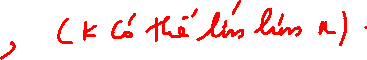 , (k có thể lớn hơn n).